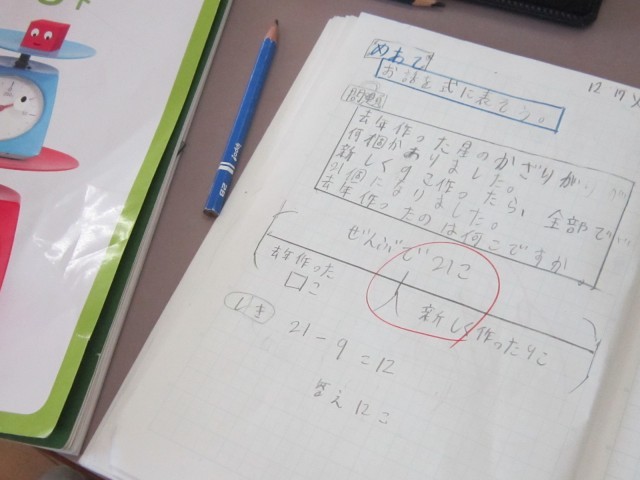 めあて
お話を式に表そう。
12 17
問題
去年作った星のかざりが
何個かありました。
新しく9こ作ったら、全部で
21個になりました。
去年作ったのは何こですか
ぜんぶで21こ
去年作った
□こ
新しく作った9こ
しき
21-9=12
答え12こ